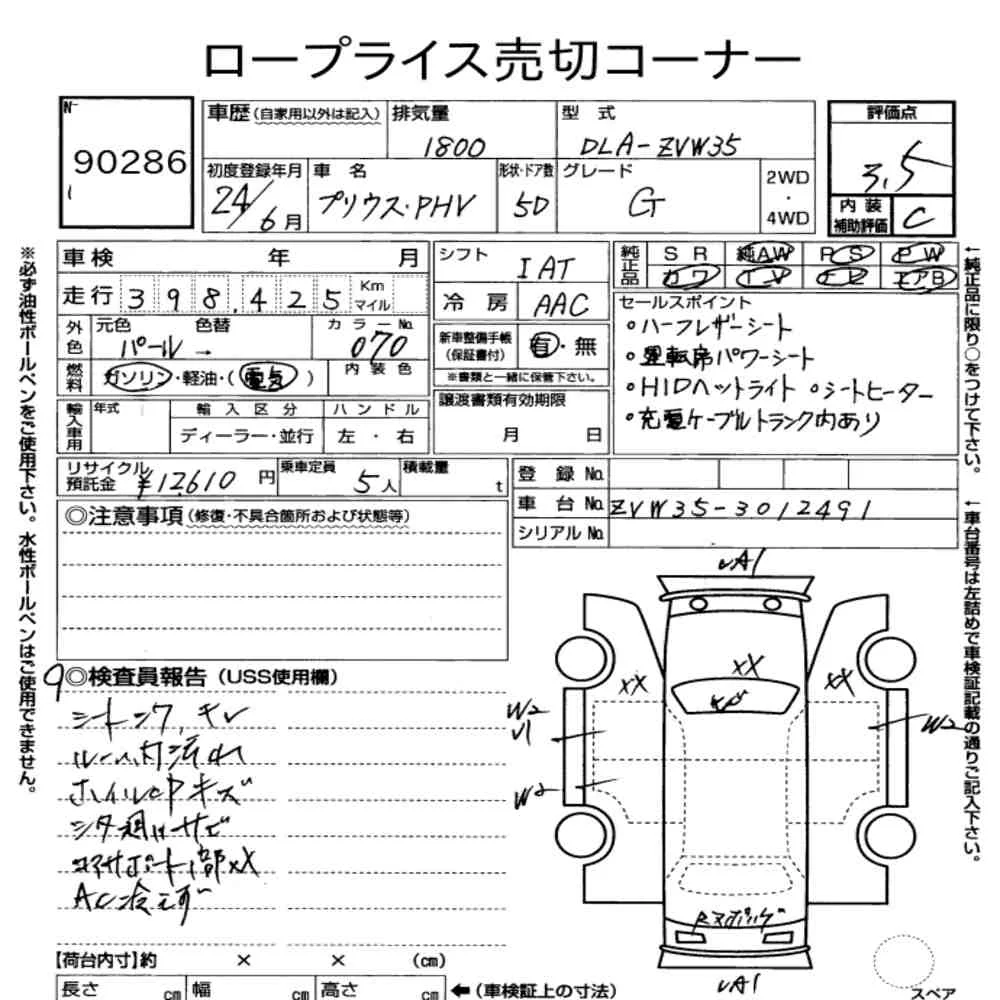 ロープライス売切コーナー
N-
90286
車歴(自家用以外は記入)
排気量
1800
型 式
DLA-ZVW35
評価点
3.5
初度登録年月
24/6月
車 名
プリウス・PHV
形状・ドア数
5D
グレード
G
2WD
・
4WD
内装
補助評価
C
車検 年 月
走行 398.425 Km マイル
外色
元色 色替
パール→
カラーNo.
070
燃料
ガソリン・軽油・(電気)
内装色
輸入車用
年式
輸入区分
ディーラー・並行
ハンドル
左・右
シフト
IAT
冷房
AAC
新車整備手帳
(保証書付)
有・無
※書類と一緒に保管下さい。
譲渡書類有効期限
月 日
純正品
SR 純AW PS PW
カワ TV ナビ エアB
セールスポイント
・ハーフレザーシート
・運転席パワーシート
・HIDヘットライト ・シートヒーター
・充電ケーブルトランク内あり
リサイクル
預託金
¥12610円
乗車定員
5人
積載量
t
登録No.
車台No. ZVW35-3012491
シリアルNo.
◎注意事項(修復・不具合箇所および状態等)
9
◎検査員報告(USS使用欄)
シートシワ,キレ
ルーム内汚れ
ホイルCPキズ
シタ廻りサビ
コアサポート1部XX
AC冷えず
√A1
XX
XX
XX
W2
√1
W2
W2
Rスポイラ
√A1
【荷台内寸】約 × × (cm)
長さ cm 幅 cm 高さ cm ←(車検証上の寸法)
スペア
※必ず油性ボールペンをご使用下さい。水性ボールペンはご使用できません。
←純正品に限り○をつけて下さい。
←車台番号は左詰めで車検証記載の通りご記入下さい。